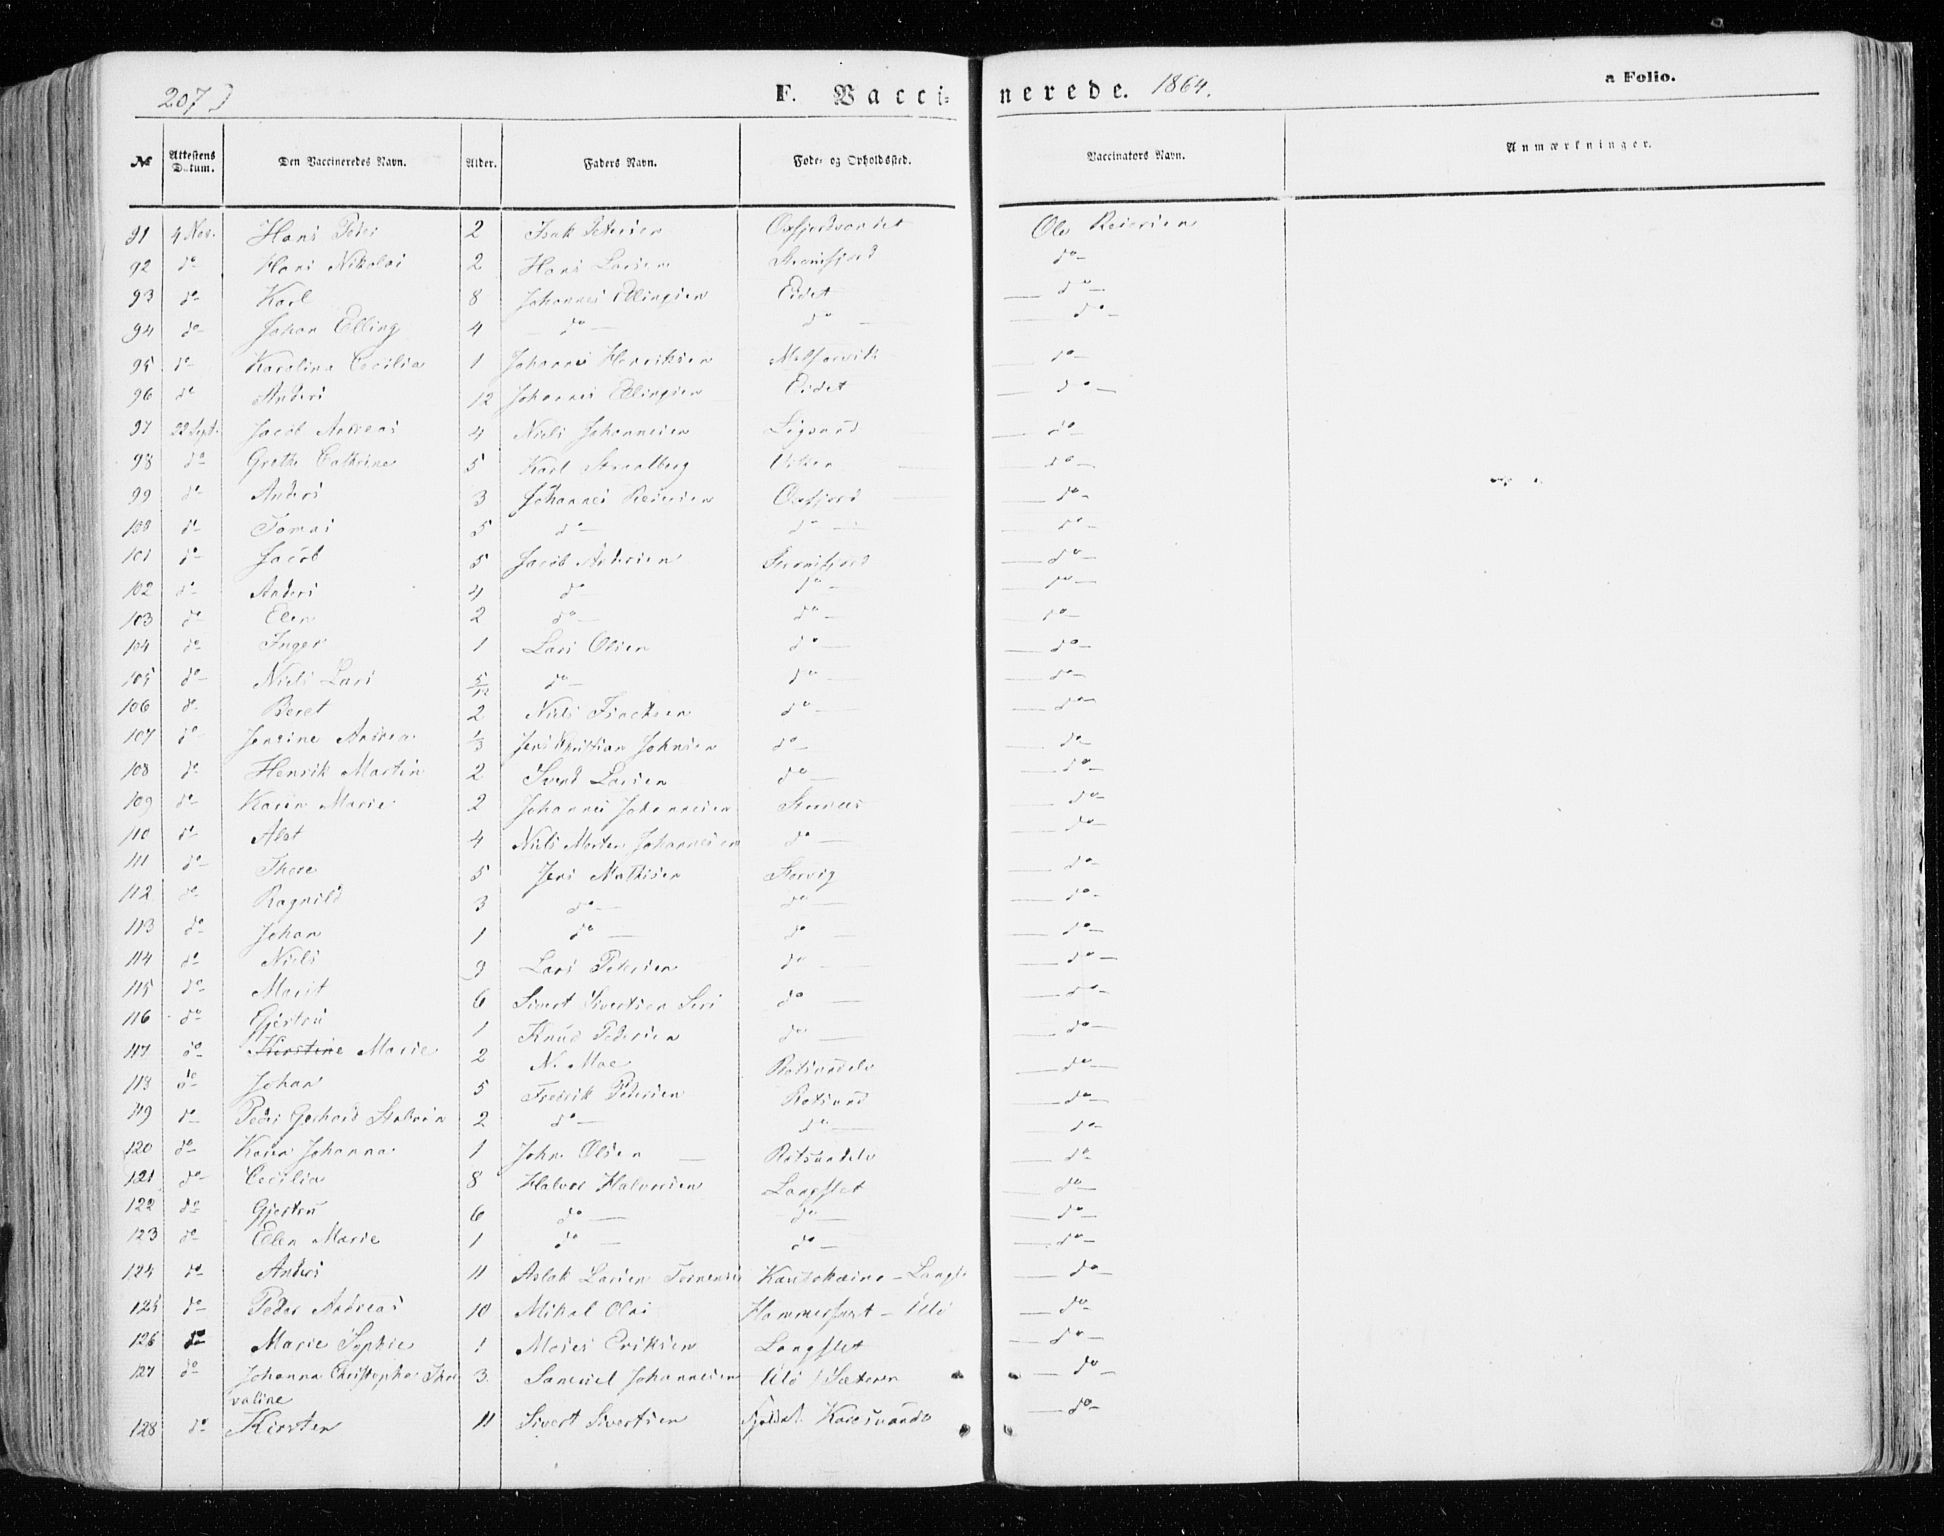 207
F. Vaccinerede. 1864.
a Folio.
№ | Attestens Datum. | Den Vaccineredes Navn. | Alder. | Faders Navn. | Føde- og Opholdssted. | Vaccinators Navn. | Anmærkninger.
91 4 Nov. Hans Peder 2 Isak Petersen Oxfjordvandet Ole Reiersen
92 do Hans Nikolai 2 Hans Larsen Straumfjord do
93 do Karl 8 Johannes Ellingsen Eidet do
94 do Johan Elling 4 do do do
95 do Karolina Cecilia 1 Johannes Henriksen do
96 do Anders 12 Johannes Ellingsen Eidet do
97 22 Sept. Jacob Andreas 4 Niels Johannesen do
98 do Grethe Cathrine 5 Karl Straalberg do
99 do Anders 3 Johannes Reiersen Oxfjord do
100 do Tomas 5 do do do
101 do Jacob 5 Jacob Andersen Straumfjord do
102 do Anders 4 do do do
103 do Elen 2 do do do
104 do Inger 1 Lars Olsen do do
105 do Niels Lars 5/12 do do do
106 do Beret 2 Niels Isacksen do do
107 do Jensine Andrea 1/3 Jens Kristian Johnsen do do
108 do Henrik Martin 2 Svend Larsen do do
109 do Karen Marie 2 Johannes Johannesen do
110 do 4 Niels Morten Johannesen do do
111 do 5 Jens Mathisen Storvig do
112 do Ragnild 3 do do do
113 do Johan 1 do do do
114 do Niels 9 Lars Petersen do do
115 do Marit 6 Sivert Sivertsen do do
116 do Gjertru 1 Knud Pedersen do do
117 do Kirstine Marie 2 N. Moe Rotsundelv do
118 do Johan 5 Fredrik Pedersen Rotsund do
119 do Peder Gerhard 2 do do do
120 do Karen Johanna 1 John Olsen Rotsundelv do
121 do Cecilia 8 Halvor Halvorsen Langslet do
122 do Gjertru 6 do do do
123 do Elen Marie 1 do do do
124 do Anders 11 Aslak Larsen Kautokeino - Langs. do
125 do Peder Andreas 10 Mikal Olai Hammerfest - Ulö do
126 do Marie Sophie 1 Moses Eriksen Langslet do
127 do Johanna Christopha Tho
valine 3 Samuel Johannesen Ulö do
128 do Kirsten 11 Sivert Sivertsen Karesuando do